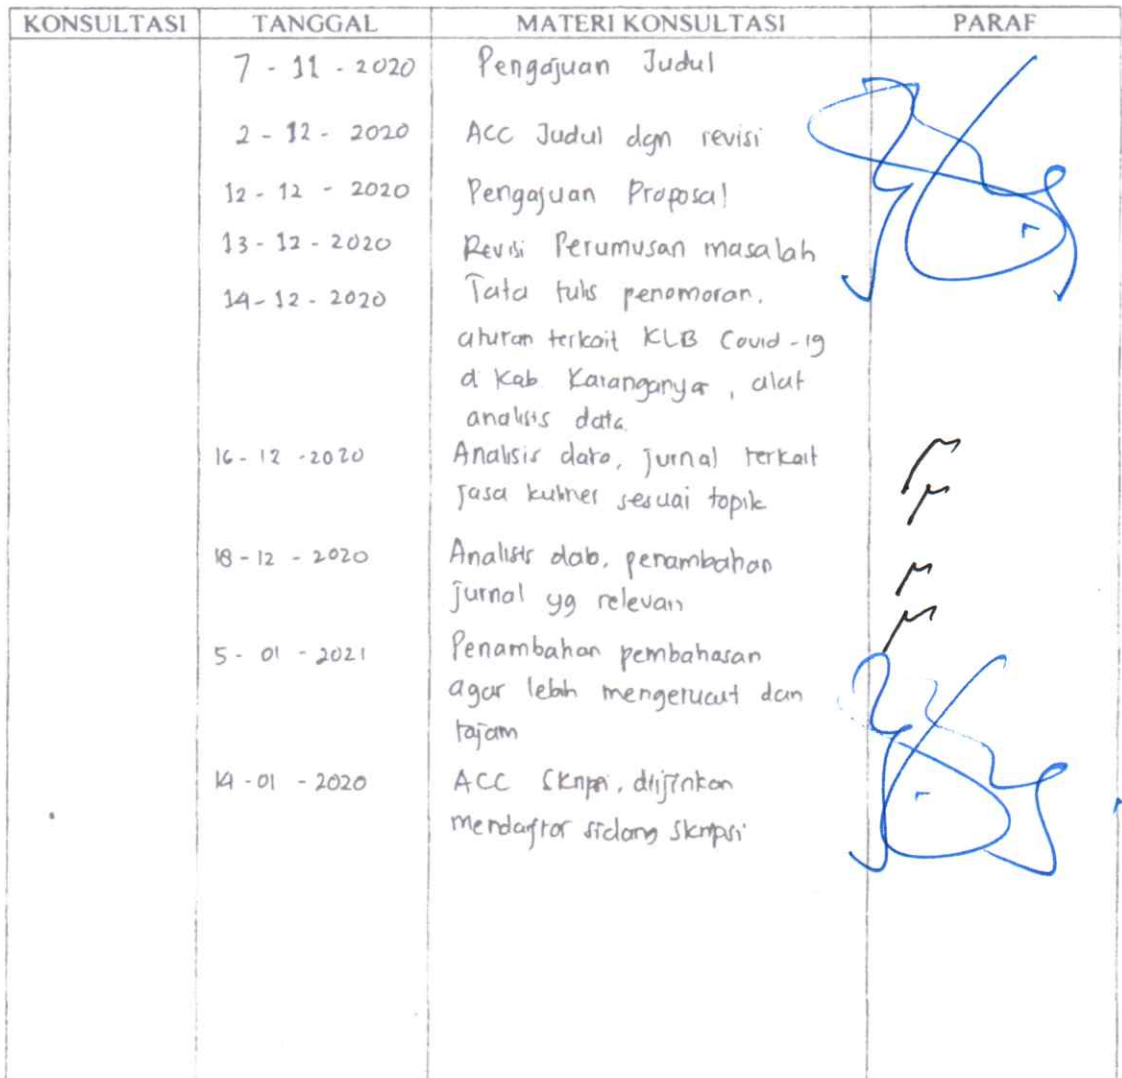 KONSULTASI TANGGAL MATERI KONSULTASI PARAF
7 - 11 - 2020 Pengajuan Judul
2 - 12 - 2020 ACC Judul dgn revisi
12 - 12 - 2020 Pengajuan Proposal
13 - 12 - 2020 Revisi Perumusan masalah
14 - 12 - 2020 Tata tulis penomoran.
aturan terkait KLB Covid-19
di Kab Karanganyar, alat
analisis data.
16 - 12 - 2020 Analisis data, jurnal terkait
jasa kuliner sesuai topik
18 - 12 - 2020 Analisis data, penambahan
jurnal yg relevan
5 - 01 - 2021 Penambahan pembahasan
agar lebih mengerucut dan
tajam
14 - 01 - 2020 ACC Skripsi, diijinkan
mendaftar sidang skripsi